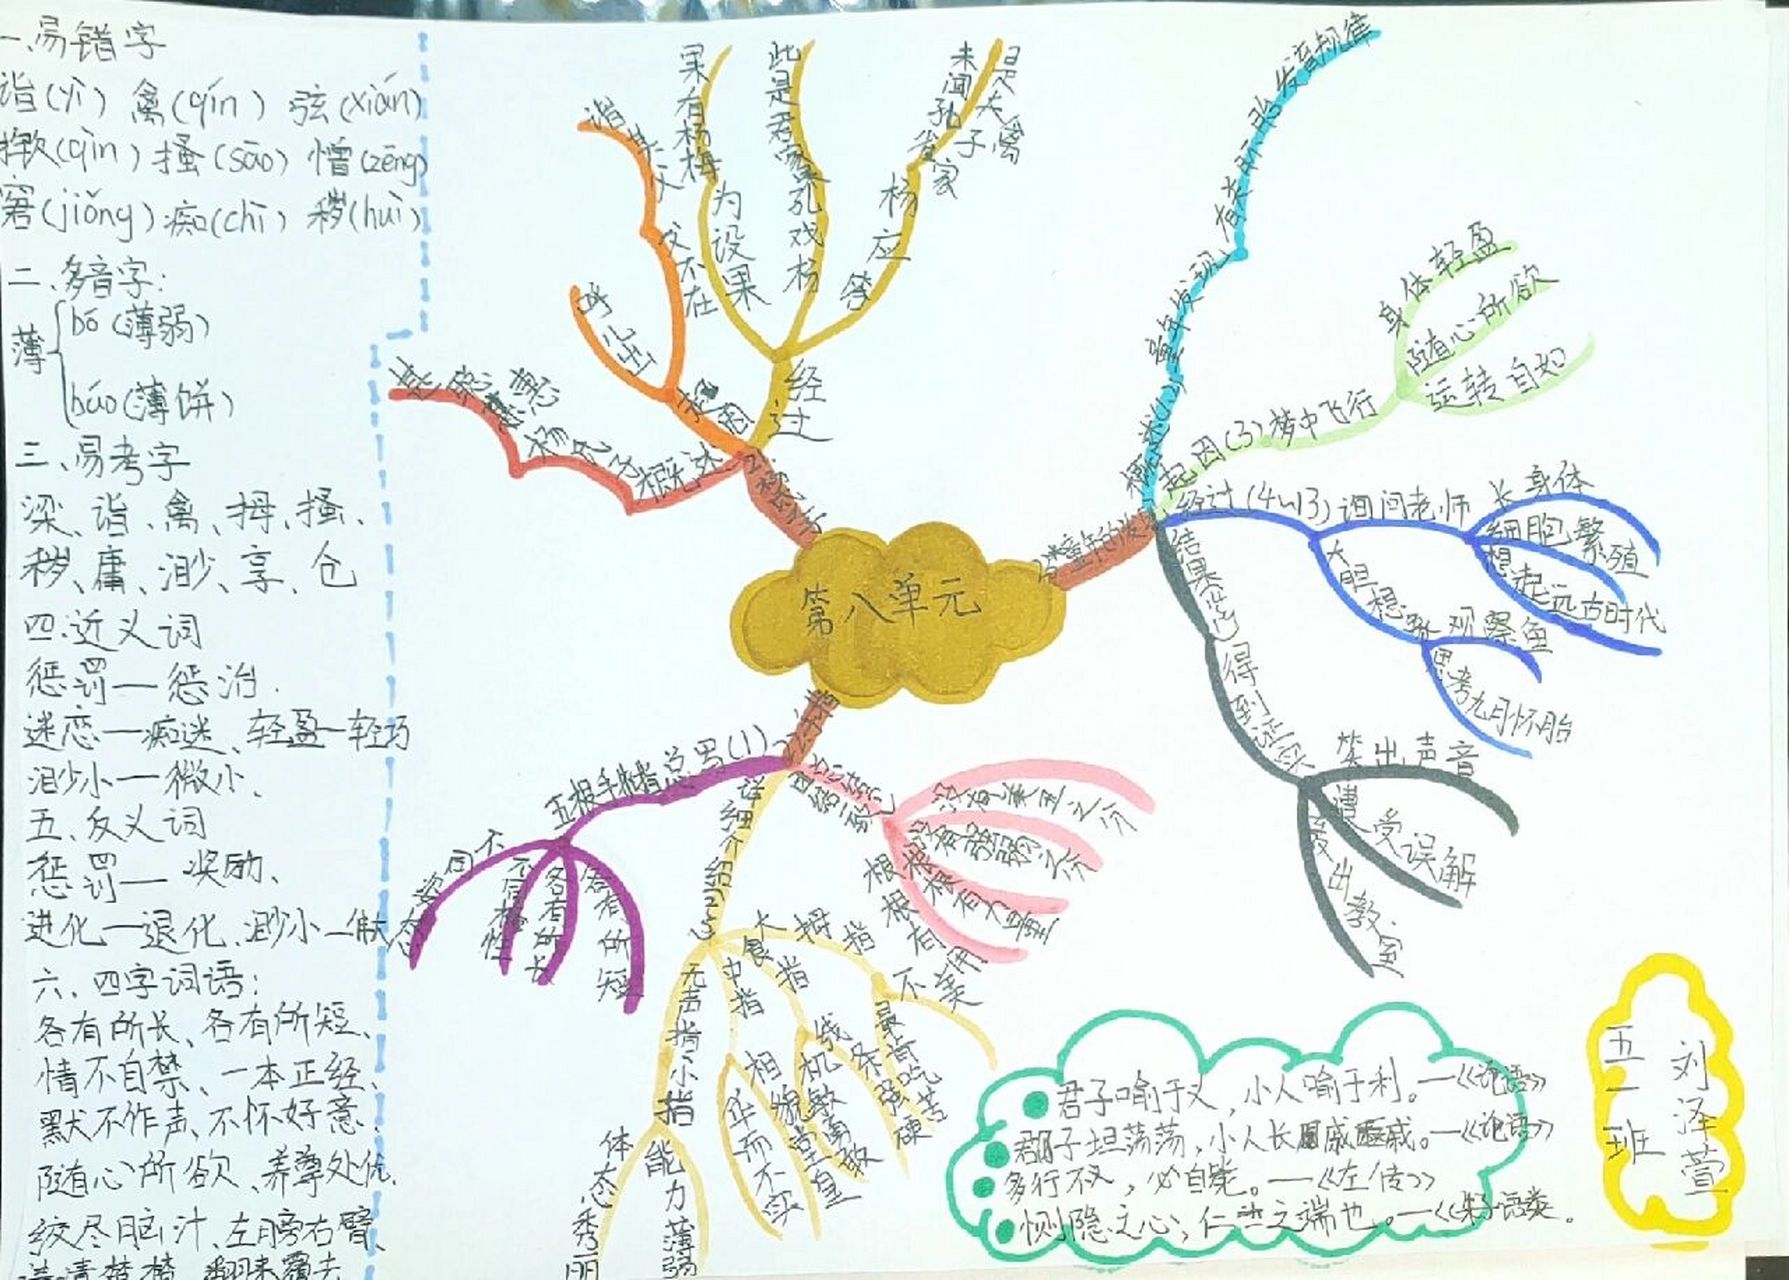 一.易错字
诣(yì) 禽(qín) 弦(xián)
揿(qìn) 搔(sāo) 憎(zēng)
窘(jiǒng) 痴(chī) 秽(huì)
二.多音字:
薄
bó(薄弱)
báo(薄饼)
三、易考字
梁、诣、禽、拇、搔、
秽、庸、渺、享、仓
四.近义词
惩罚—惩治.
迷恋—痴迷、轻盈—轻巧
渺小—微小.
五、反义词
惩罚—奖励、
进化—退化、渺小—伟大
六、四字词语:
各有所长、各有所短、
情不自禁、一本正经、
默不作声、不怀好意.
随心所欲、养尊处优.
绞尽脑汁、左膀右臂、
翻来覆去
第八单元
21.杨氏之子
概述
杨氏子
甚聪慧
起因
呼儿出
诣其父
父不在
经过
为设果
果有杨梅
孔戏杨
此是君家果
杨应答
未闻孔子
是夫子家禽
23.童年的发现
概述(1、2)
童年发现
有关胚胎发育规律
起因(3)梦中飞行
身体轻盈
随心所欲
运转自如
经过(4~13)询问老师
长身体
细胞繁殖
想起远古时代
大胆想象
观察鱼
思考九月怀胎
得到证实
笑出声音
遭受误解
轰出教室
22.手指
总写(1)
五根手指
不同姿态
不同性格
各有所长
各有所短
详细介绍
大拇指
最肯吃苦
食指
线条强硬
机敏勇敢
中指
相貌堂皇
华而不实
无名指小指
体态秀丽
能力薄弱
没有美丑之分
没有强弱之分
根根有力量
根根有用
不美
君子喻于义，小人喻于利。—《论语》
君子坦荡荡，小人长戚戚。—《论语》
多行不义，必自毙。—《左传》
恻隐之心，仁之端也。—《朱子语类
五一班
刘泽萱